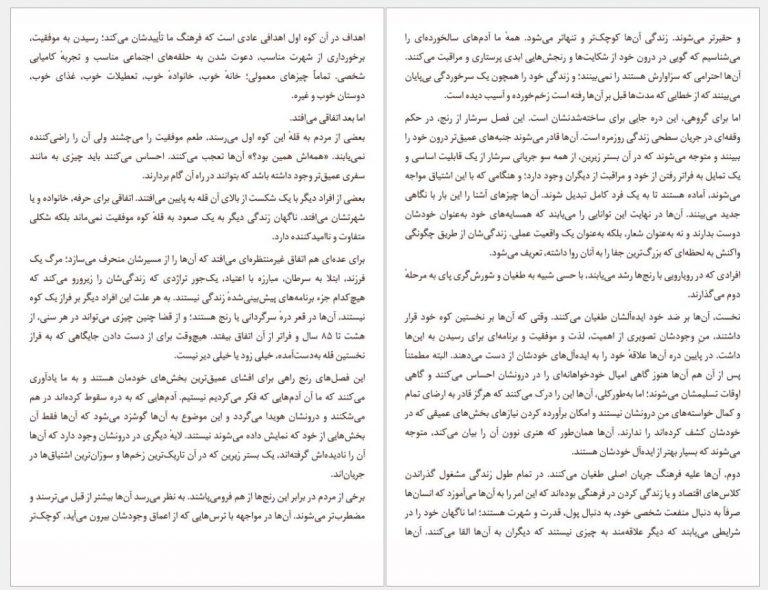 اهداف در آن کوه اول اهدافی عادی است که فرهنگ ما تأییدشان می‌کند؛ رسیدن به موفقیت،
برخورداری از شهرت مناسب، دعوت شدن به حلقه‌های اجتماعی مناسب و تجربهٔ کامیابی
شخصی. تماماً چیزهای معمولی؛ خانهٔ خوب، خانوادهٔ خوب، تعطیلات خوب، غذای خوب،
دوستان خوب و غیره.
اما بعد اتفاقی می‌افتد.
بعضی از مردم به قلهٔ این کوه اول می‌رسند، طعم موفقیت را می‌چشند ولی آن را راضی‌کننده
نمی‌یابند. «همه‌اش همین بود؟» آن‌ها تعجب می‌کنند. احساس می‌کنند باید چیزی به مانند
سفری عمیق‌تر وجود داشته باشد که بتوانند در راه آن گام بردارند.
بعضی از افراد دیگر با یک شکست از بالای آن قله به پایین می‌افتند. اتفاقی برای حرفه، خانواده و یا
شهرتشان می‌افتد. ناگهان زندگی دیگر به یک صعود به قلهٔ کوه موفقیت نمی‌ماند بلکه شکلی
متفاوت و ناامیدکننده دارد.
برای عده‌ای هم اتفاق غیرمنتظره‌ای می‌افتد که آن‌ها را از مسیرشان منحرف می‌سازد؛ مرگ یک
فرزند، ابتلا به سرطان، مبارزه با اعتیاد، یک‌جور تراژدی که زندگی‌شان را زیرورو می‌کند که
هیچ‌کدام جزء برنامه‌های پیش‌بینی‌شدهٔ زندگی نیستند. به هر علت این افراد دیگر بر فراز یک کوه
نیستند، آن‌ها در قعر درهٔ سرگردانی یا رنج هستند؛ و از قضا چنین چیزی می‌تواند در هر سنی، از
هشت تا ۸۵ سال و فراتر از آن اتفاق بیفتد. هیچ‌وقت برای از دست دادن جایگاهی که به فراز
نخستین قله به‌دست‌آمده، خیلی زود یا خیلی دیر نیست.
این فصل‌های رنج راهی برای افشای عمیق‌ترین بخش‌های خودمان هستند و به ما یادآوری
می‌کنند که ما آن آدم‌هایی که فکر می‌کردیم نیستیم. آدم‌هایی که به دره سقوط کرده‌اند در هم
می‌شکنند و درونشان هویدا می‌گردد و این موضوع به آن‌ها گوشزد می‌شود که آن‌ها فقط آن
بخش‌هایی از خود که نمایش داده می‌شوند نیستند. لایهٔ دیگری در درونشان وجود دارد که آن‌ها
آن را نادیده‌اش گرفته‌اند، یک بستر زیرین که در آن تاریک‌ترین زخم‌ها و سوزان‌ترین اشتیاق‌ها در
جریان‌اند.
برخی از مردم در برابر این رنج‌ها از هم فرومی‌پاشند. به نظر می‌رسد آن‌ها بیشتر از قبل می‌ترسند و
مضطرب‌تر می‌شوند. آن‌ها در مواجهه با ترس‌هایی که از اعماق وجودشان بیرون می‌آید، کوچک‌تر
و حقیرتر می‌شوند. زندگی آن‌ها کوچک‌تر و تنهاتر می‌شود. همهٔ ما آدم‌های سالخورده‌ای را
می‌شناسیم که گویی در درون خود از شکایت‌ها و رنجش‌هایی ابدی پرستاری و مراقبت می‌کنند.
آن‌ها احترامی که سزاوارش هستند را نمی‌بینند؛ و زندگی خود را همچون یک سرخوردگی بی‌پایان
می‌بینند که از خطایی که مدت‌ها قبل بر آن‌ها رفته است زخم‌خورده و آسیب دیده است.
اما برای گروهی، این دره جایی برای ساخته‌شدنشان است. این فصل سرشار از رنج، در حکم
وقفه‌ای در جریان سطحی زندگی روزمره است. آن‌ها قادر می‌شوند جنبه‌های عمیق‌تر درون خود را
ببینند و متوجه می‌شوند که در آن بستر زیرین، از همه سو جریانی سرشار از یک قابلیت اساسی و
یک تمایل به فراتر رفتن از خود و مراقبت از دیگران وجود دارد؛ و هنگامی که با این اشتیاق مواجه
می‌شوند، آماده هستند تا به یک فرد کامل تبدیل شوند. آن‌ها چیزهای آشنا را این بار با نگاهی
جدید می‌بینند. آن‌ها در نهایت این توانایی را می‌یابند که همسایه‌های خود به‌عنوان خودشان
دوست بدارند و نه به‌عنوان شعار، بلکه به‌عنوان یک واقعیت عملی. زندگی‌شان از طریق چگونگی
واکنش به لحظه‌ای که بزرگ‌ترین جفا را به آنان روا داشته، تعریف می‌شود.
افرادی که در رویارویی با رنج‌ها رشد می‌یابند، با حسی شبیه به طغیان و شورش‌گری پای به مرحلهٔ
دوم می‌گذارند.
نخست، آن‌ها بر ضد خود ایده‌آلشان طغیان می‌کنند. وقتی که آن‌ها بر نخستین کوه خود قرار
داشتند، من وجودشان تصویری از اهمیت، لذت و موفقیت و برنامه‌ای برای رسیدن به این‌ها
داشت. در پایین دره آن‌ها علاقهٔ خود را به ایده‌آل‌های خودشان از دست می‌دهند. البته مطمئناً
پس از آن هم آن‌ها هنوز گاهی امیال خودخواهانه‌ای را در درونشان احساس می‌کنند و گاهی
اوقات تسلیمشان می‌شوند؛ اما به‌طورکلی، آن‌ها این را درک می‌کنند که هرگز قادر به ارضای تمام
و کمال خواسته‌های من درونشان نیستند و امکان برآورده کردن نیازهای بخش‌های عمیقی که در
خودشان کشف کرده‌اند را ندارند. آن‌ها همان‌طور که هنری نوون آن را بیان می‌کند، متوجه
می‌شوند که بسیار بهتر از ایده‌آل خودشان هستند.
دوم، آن‌ها علیه فرهنگ جریان اصلی طغیان می‌کنند. در تمام طول زندگی مشغول گذراندن
کلاس‌های اقتصاد و یا زندگی کردن در فرهنگی بوده‌اند که این امر را به آن‌ها می‌آموزد که انسان‌ها
صرفاً به دنبال منفعت شخصی خود، به دنبال پول، قدرت و شهرت هستند؛ اما ناگهان خود را در
شرایطی می‌یابند که دیگر علاقه‌مند به چیزی نیستند که دیگران به آن‌ها القا می‌کنند. آن‌ها